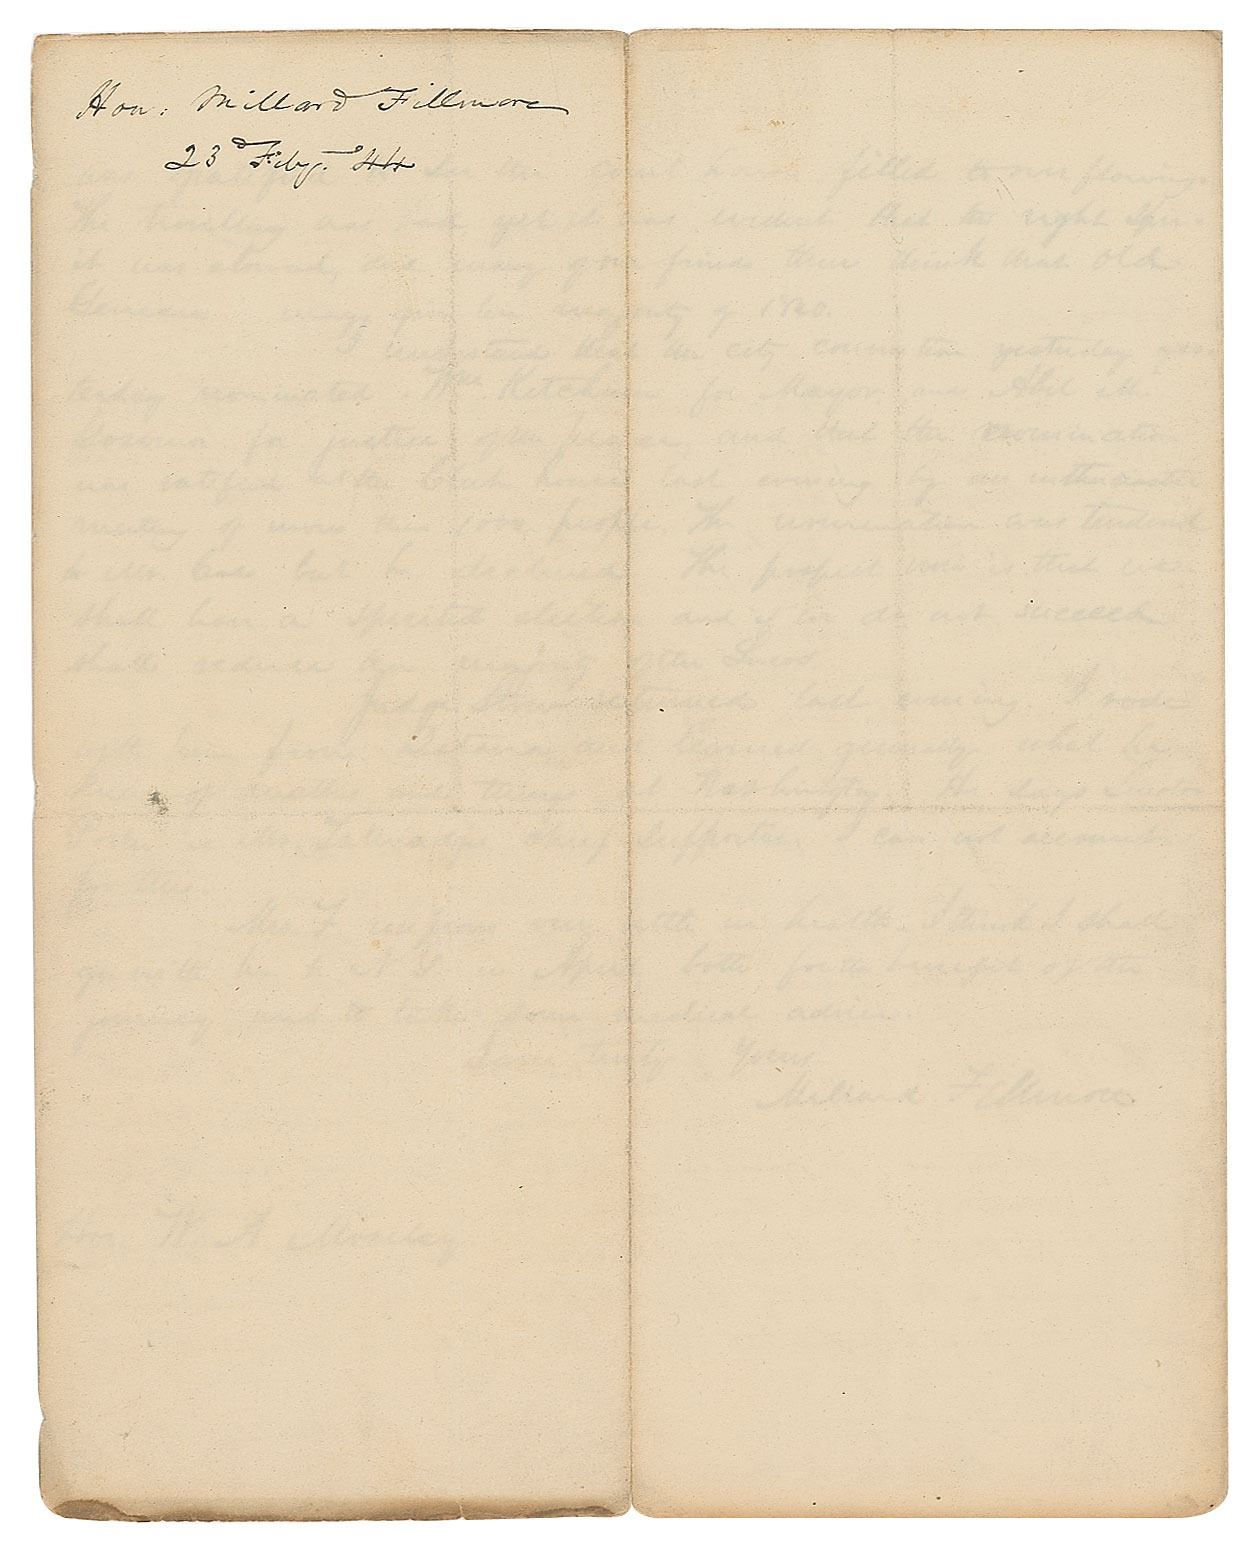 Hon: Millard Fillmore
23d Feby. 44
was gratified to see the court house filled to overflowing.
The travelling was bad, yet it was evident that the right spir-
it was abroad, and many of our friends there think that old
Genesee may give her majority of 1840.
I understand that the city convention yesterday yes-
terday nominated Wm Ketchum for Mayor and Abel M.
for justice of the peace, and that the nomination
was ratified at the Club house last evening by an enthusiastic
meeting of more than 1000 people. The nomination was tendered
to Mr. but he declined. The prospect now is that we
shall have a spirited election and if we do not succeed
shall reduce the majority of the Locos.
Judge returned last evening. I rode
with him from Batavia, and learned generally what he
knew of matters and things at Washington. He says Senator
Porter is Mr. Talmadge's chief supporter. I can not account
for this.
Mrs. F improves very little in health. I think I shall
go with her to N. Y. in April both for the benefit of the
journey and to take some medical advice.
truly Yours
Millard Fillmore
Hon. W. A. Moseley